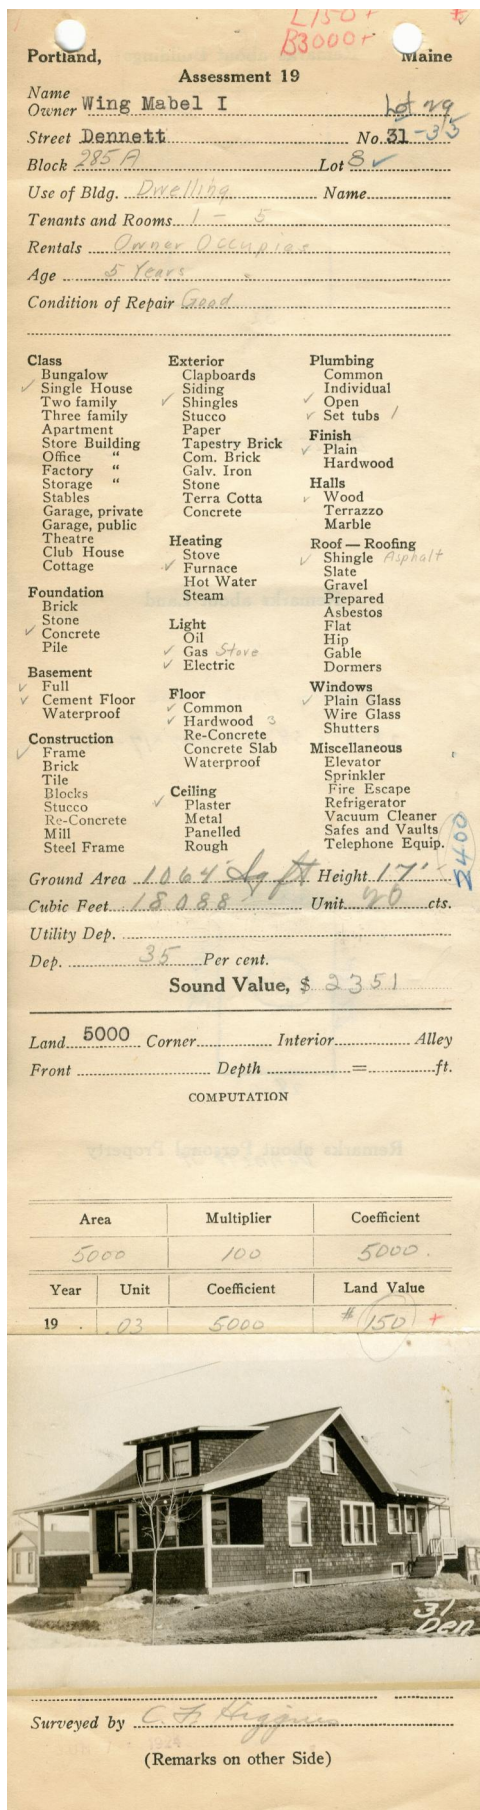 L150+
B3000+
Portland, Maine
Assessment 19
Name
Owner Wing Mabel I Lot 29
Street Dennett No. 31-35
Block 285A Lot 8 ✓
Use of Bldg. Dwelling Name
Tenants and Rooms 1 - 5
Rentals Owner Occupies
Age 5 Years
Condition of Repair Good
Class
Bungalow
✓ Single House
Two family
Three family
Apartment
Store Building
Office "
Factory "
Storage "
Stables
Garage, private
Garage, public
Theatre
Club House
Cottage
Foundation
Brick
Stone
✓ Concrete
Pile
Basement
✓ Full
✓ Cement Floor
Waterproof
Construction
✓ Frame
Brick
Tile
Blocks
Stucco
Re-Concrete
Mill
Steel Frame
Exterior
Clapboards
Siding
✓ Shingles
Stucco
Paper
Tapestry Brick
Com. Brick
Galv. Iron
Stone
Terra Cotta
Concrete
Heating
Stove
✓ Furnace
Hot Water
Steam
Light
Oil
✓ Gas Stove
✓ Electric
Floor
✓ Common
✓ Hardwood 3
Re-Concrete
Concrete Slab
Waterproof
Ceiling
✓ Plaster
Metal
Panelled
Rough
Plumbing
Common
Individual
✓ Open
✓ Set tubs 1
Finish
✓ Plain
Hardwood
Halls
✓ Wood
Terrazzo
Marble
Roof — Roofing
✓ Shingle Asphalt
Slate
Gravel
Prepared
Asbestos
Flat
Hip
Gable
Dormers
Windows
✓ Plain Glass
Wire Glass
Shutters
Miscellaneous
Elevator
Sprinkler
Fire Escape
Refrigerator
Vacuum Cleaner
Safes and Vaults
Telephone Equip.
2400
Ground Area 1064 Sq ft Height 17'
Cubic Feet 18088 Unit 20 cts.
Utility Dep.
Dep. 35 Per cent.
Sound Value, $ 2351
Land 5000 Corner Interior Alley
Front Depth = ft.
COMPUTATION
Area Multiplier Coefficient
5000 100 5000.
Year Unit Coefficient Land Value
19 .03 5000 # 150 +
31
Den
Surveyed by C. F. Higgins
(Remarks on other Side)